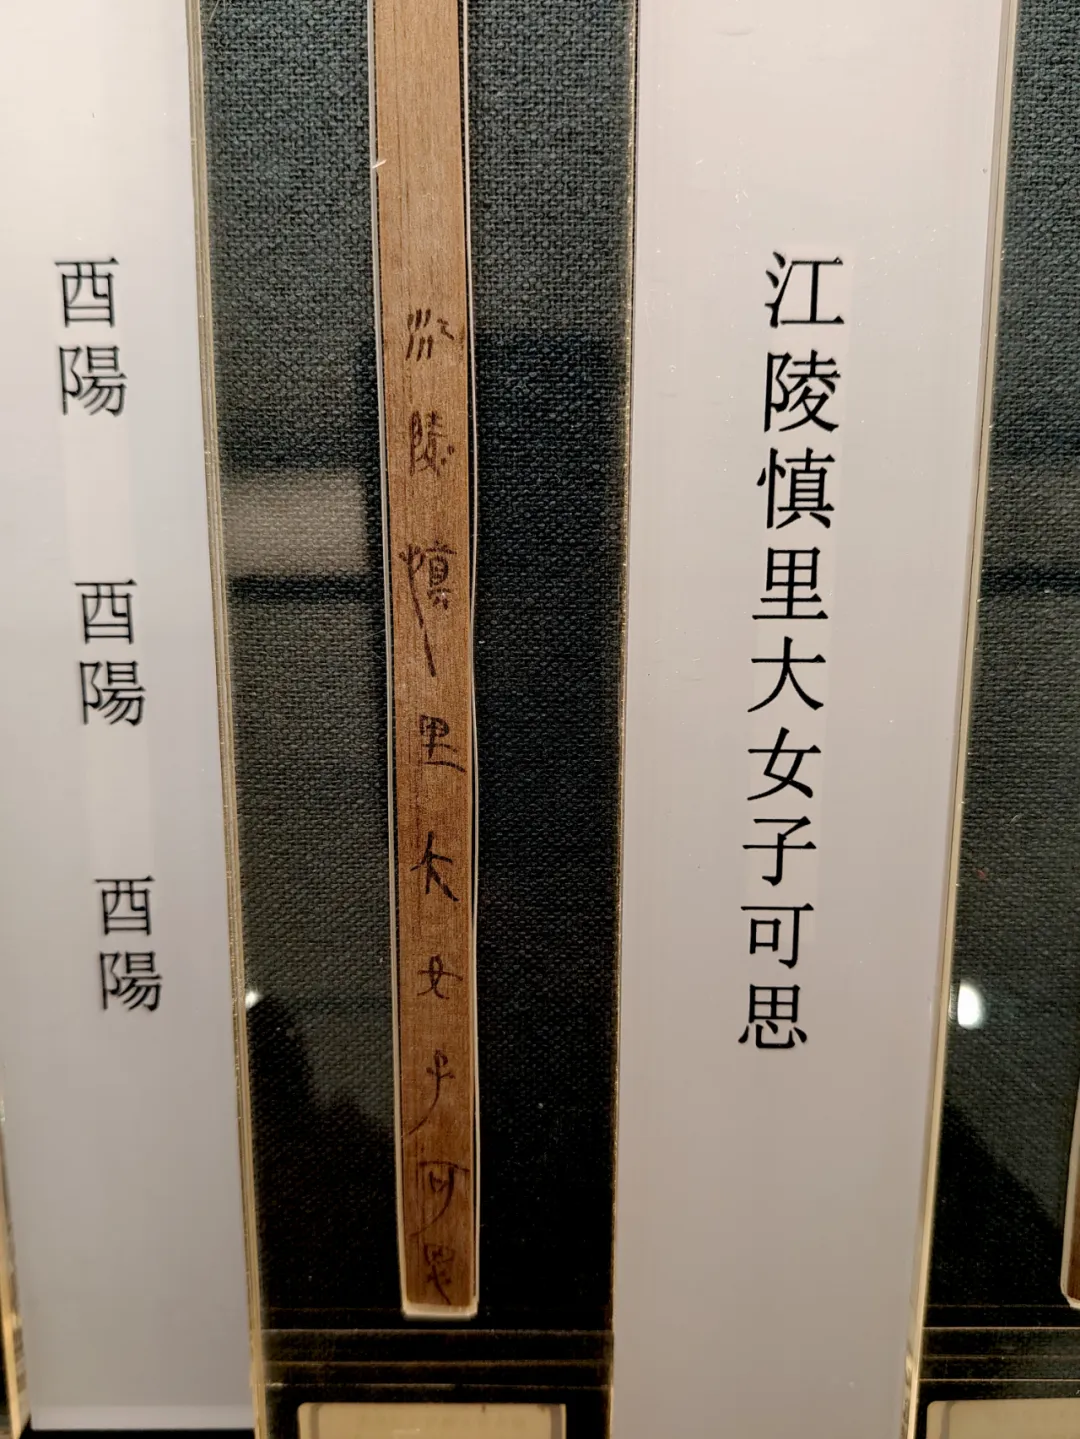 江陵慎里大女子可思
江陵慎里大女子可思
酉陽 酉陽 酉陽